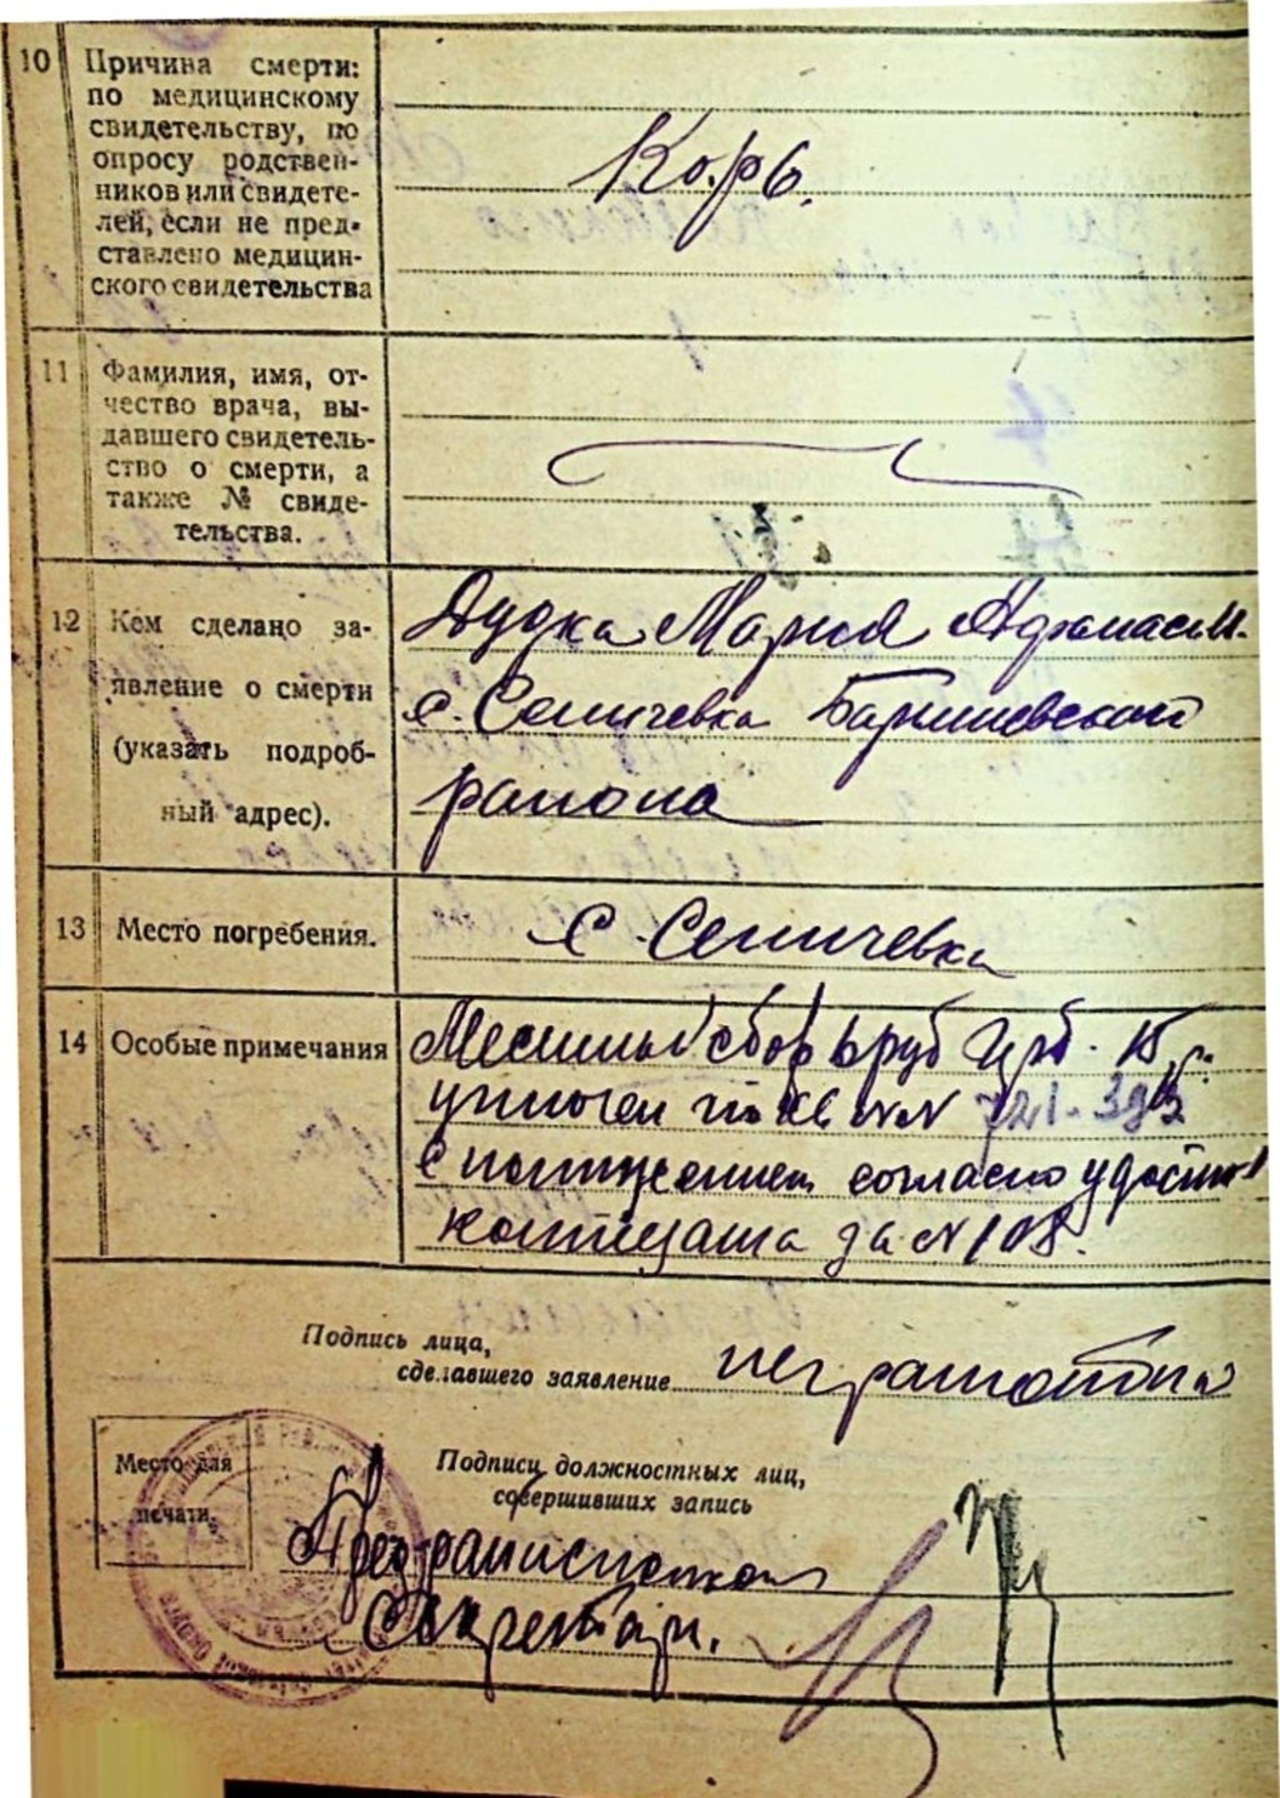 10 Причина смерти:
по медицинскому
свидетельству, по
опросу родствен-
ников или свидете-
лей, если не пред-
ставлено медицин-
ского свидетельства
Корь.
11 Фамилия, имя, от-
чество врача, вы-
давшего свидетель-
ство о смерти, а
также № свиде-
тельства.
12 Кем сделано за-
явление о смерти
(указать подроб-
ный адрес).
Дудка Мария Афанасьев.
с. Сеничевка Баришевской
района
13 Место погребения.
с. Сеничевка
14 Особые примечания
Местный сбор руб
уплочен по кв
согласно
за N 108.
Подпись лица,
сделавшего заявление неграмотна
Место для
печати.
Подписи должностных лиц,
совершивших запись
Пред райисполкома
Секретарь.